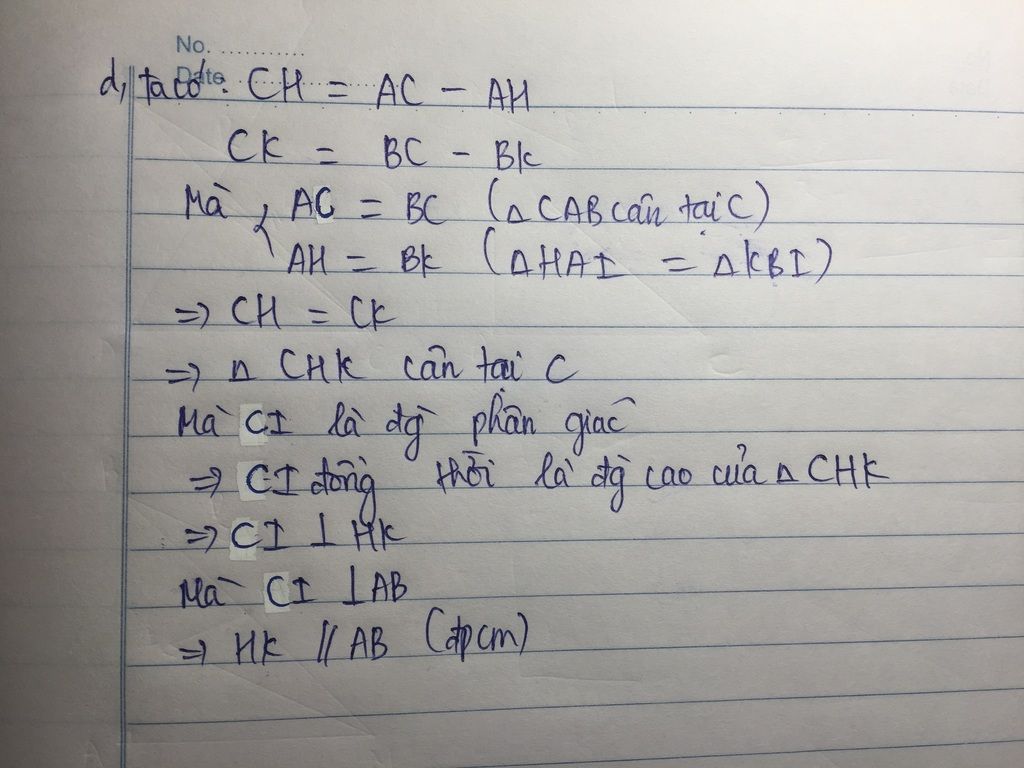 No. ............
Date
d, ta có: CH = AC - AH
CK = BC - BK
Mà { AC = BC (△CAB cân tại C)
AH = BK (△HAI = △KBI)
=> CH = CK
=> △ CHK cân tại C
Mà CI là đg phân giác
=> CI đồng thời là đg cao của △ CHK
=> CI ⊥ HK
Mà CI ⊥ AB
=> HK // AB (đpcm)